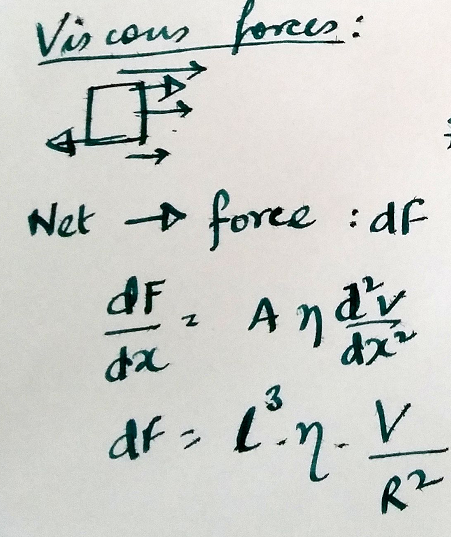 Viscous forces:
Net → force : dF
dF/dx = A η d²v/dx²
dF = l³·η· V/R²